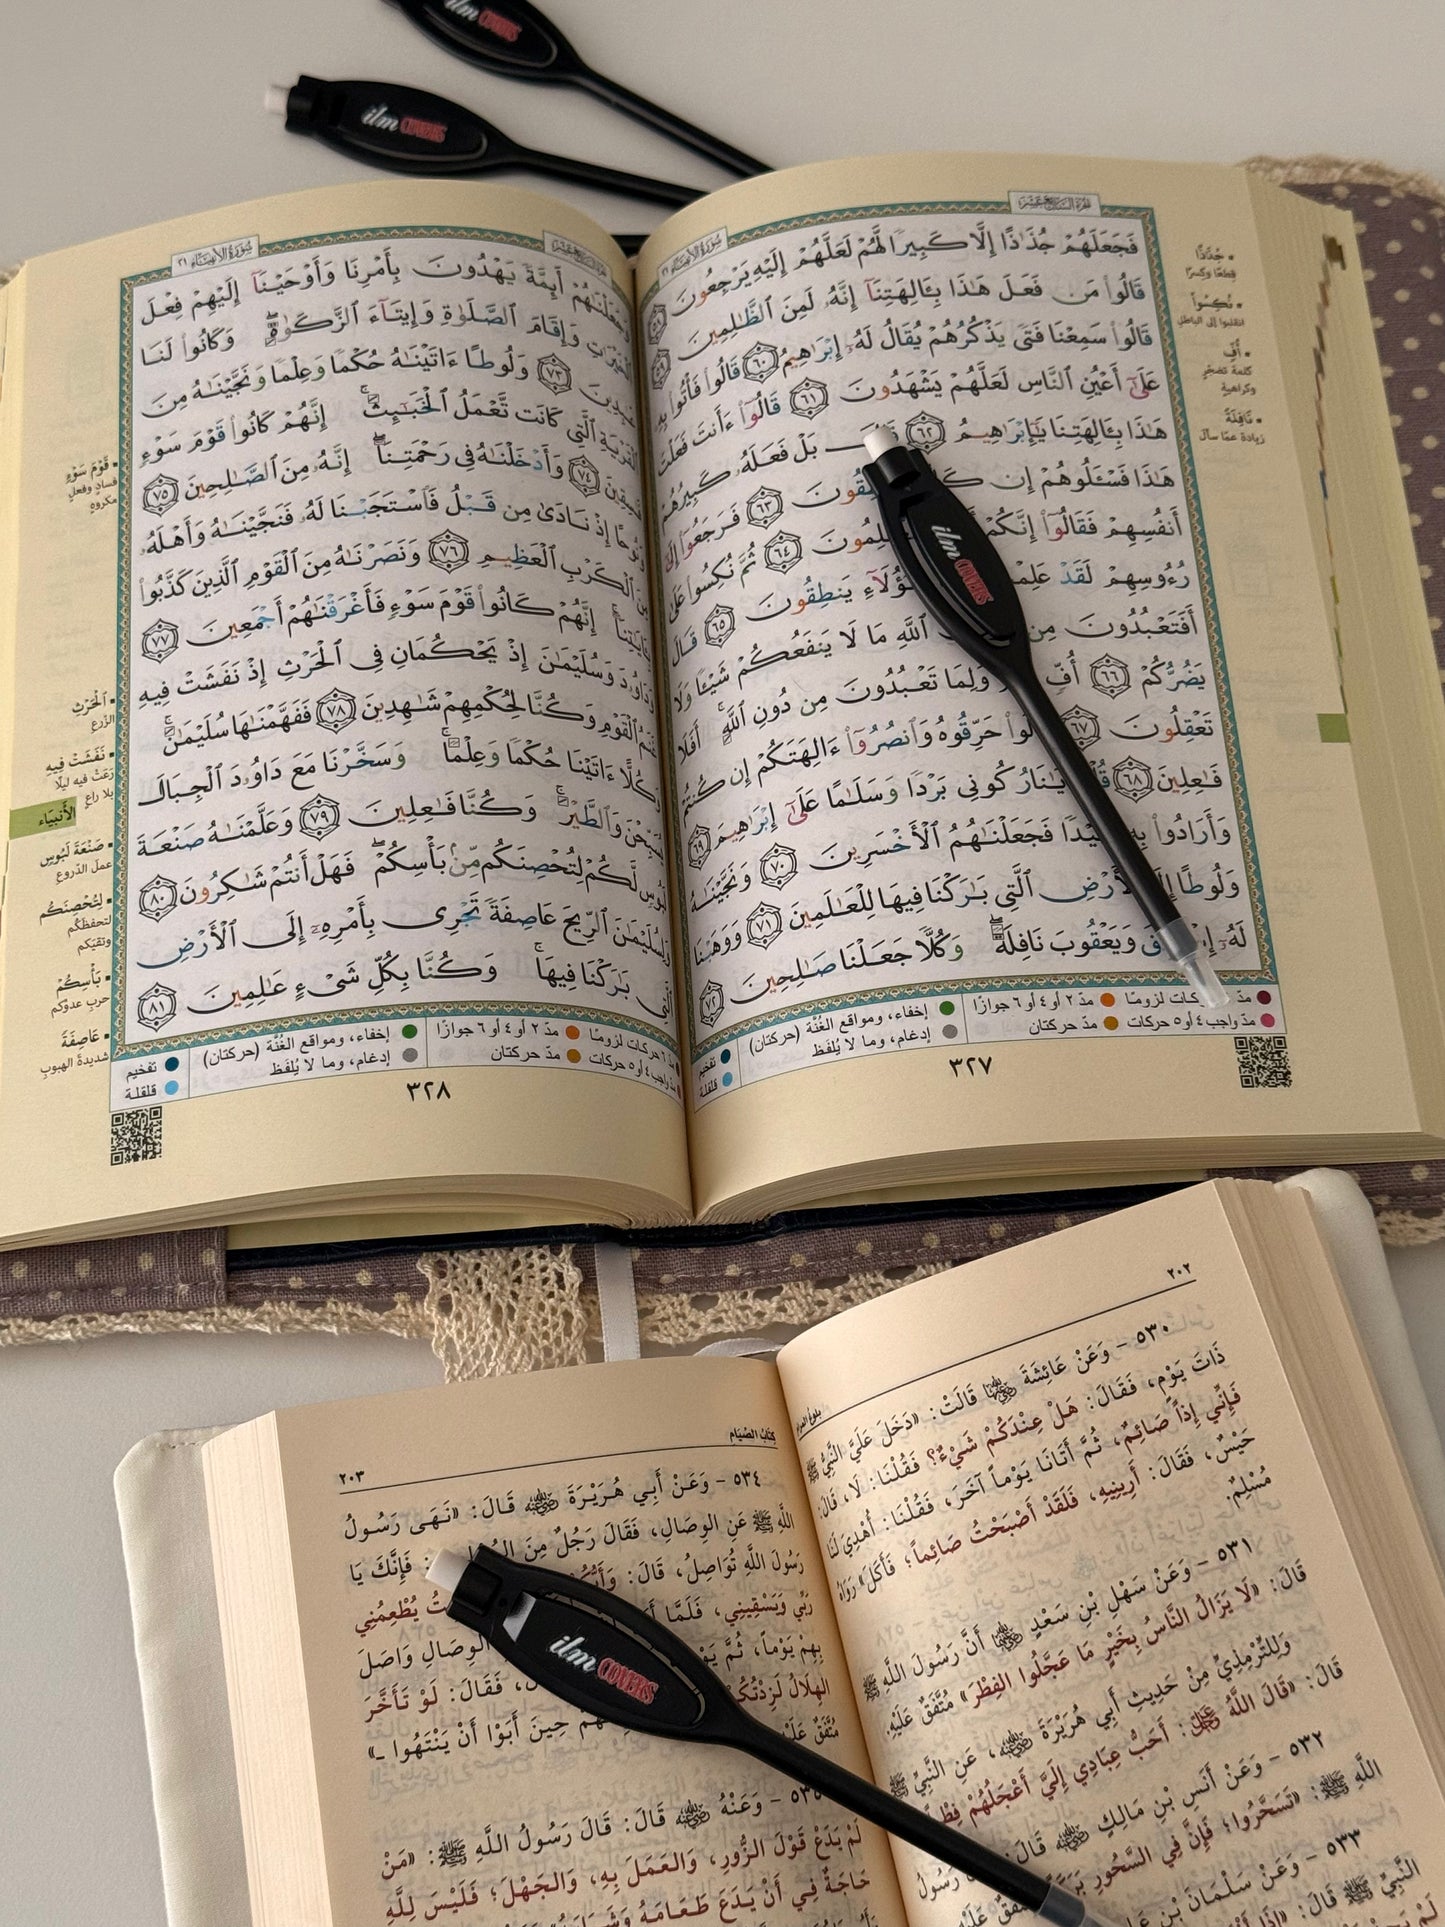 ilm COVERS
ilm COVERS
الجزء السابع عشر
سورة الأنبياء ٢١
فَجَعَلَهُمْ جُذَاذًا إِلَّا كَبِيرًا لَّهُمْ لَعَلَّهُمْ إِلَيْهِ يَرْجِعُونَ ٥٨
قَالُوا۟ مَن فَعَلَ هَـٰذَا بِـَٔالِهَتِنَآ إِنَّهُۥ لَمِنَ ٱلظَّـٰلِمِينَ ٥٩
قَالُوا۟ سَمِعْنَا فَتًى يَذْكُرُهُمْ يُقَالُ لَهُۥٓ إِبْرَٰهِيمُ ٦٠ قَالُوا۟ فَأْتُوا۟ بِهِۦ
عَلَىٰٓ أَعْيُنِ ٱلنَّاسِ لَعَلَّهُمْ يَشْهَدُونَ ٦١ قَالُوٓا۟ ءَأَنتَ فَعَلْتَ
هَـٰذَا بِـَٔالِهَتِنَا يَـٰٓإِبْرَٰهِيمُ ٦٢ بَلْ فَعَلَهُۥ كَبِيرُهُمْ
هَـٰذَا فَسْـَٔلُوهُمْ إِن ٦٣ فَرَجَعُوٓا۟ إِلَىٰٓ
أَنفُسِهِمْ فَقَالُوٓا۟ إِنَّكُمْ ٦٤ ثُمَّ نُكِسُوا۟ عَلَىٰ
رُءُوسِهِمْ لَقَدْ يَنطِقُونَ ٦٥ قَالَ
أَفَتَعْبُدُونَ مِن ٱللَّهِ مَا لَا يَنفَعُكُمْ شَيْـًٔا وَلَا
يَضُرُّكُمْ ٦٦ أُفٍّ وَلِمَا تَعْبُدُونَ مِن دُونِ ٱللَّهِ ۖ أَفَلَا
تَعْقِلُونَ ٦٧ حَرِّقُوهُ وَٱنصُرُوٓا۟ ءَالِهَتَكُمْ إِن كُنتُمْ
فَـٰعِلِينَ ٦٨ يَـٰنَارُ كُونِى بَرْدًا وَسَلَـٰمًا عَلَىٰٓ إِبْرَٰهِيمَ ٦٩
وَأَرَادُوا۟ بِهِۦ فَجَعَلْنَـٰهُمُ ٱلْأَخْسَرِينَ ٧٠ وَنَجَّيْنَـٰهُ
وَلُوطًا إِلَى ٱلْأَرْضِ ٱلَّتِى بَـٰرَكْنَا فِيهَا لِلْعَـٰلَمِينَ ٧١ وَوَهَبْنَا
لَهُۥٓ وَيَعْقُوبَ نَافِلَةً ۖ وَكُلًّا جَعَلْنَا صَـٰلِحِينَ ٧٢
جُذَاذًا
قِطعًا وكِسرًا
نُكِسُوا
انقلبوا إلى الباطل
أُفٍّ
كلمة تضجّر
وكراهية
نَافِلَةً
زيادة عمّا سأل
ilm COVERS
مدّ ٢ أو ٤ أو ٦ جوازًا إخفاء، ومواقع الغُنّة (حركتان) تفخيم
مدّ واجب ٤ أو ٥ حركات مدّ حركتان إدغام، وما لا يُلفَظ قلقلة
٣٢٧
سورة الأنبياء ٢١
وَجَعَلْنَـٰهُمْ أَئِمَّةً يَهْدُونَ بِأَمْرِنَا وَأَوْحَيْنَآ إِلَيْهِمْ فِعْلَ
ٱلْخَيْرَٰتِ وَإِقَامَ ٱلصَّلَوٰةِ وَإِيتَآءَ ٱلزَّكَوٰةِ ۖ وَكَانُوا۟ لَنَا
عَـٰبِدِينَ ٧٣ وَلُوطًا ءَاتَيْنَـٰهُ حُكْمًا وَعِلْمًا وَنَجَّيْنَـٰهُ مِنَ
ٱلْقَرْيَةِ ٱلَّتِى كَانَت تَّعْمَلُ ٱلْخَبَـٰٓئِثَ ۗ إِنَّهُمْ كَانُوا۟ قَوْمَ سَوْءٍ
فَـٰسِقِينَ ٧٤ وَأَدْخَلْنَـٰهُ فِى رَحْمَتِنَآ ۖ إِنَّهُۥ مِنَ ٱلصَّـٰلِحِينَ ٧٥
وَنُوحًا إِذْ نَادَىٰ مِن قَبْلُ فَٱسْتَجَبْنَا لَهُۥ فَنَجَّيْنَـٰهُ وَأَهْلَهُۥ
مِنَ ٱلْكَرْبِ ٱلْعَظِيمِ ٧٦ وَنَصَرْنَـٰهُ مِنَ ٱلْقَوْمِ ٱلَّذِينَ كَذَّبُوا۟
بِـَٔايَـٰتِنَآ ۚ إِنَّهُمْ كَانُوا۟ قَوْمَ سَوْءٍ فَأَغْرَقْنَـٰهُمْ أَجْمَعِينَ ٧٧
وَدَاوُۥدَ وَسُلَيْمَـٰنَ إِذْ يَحْكُمَانِ فِى ٱلْحَرْثِ إِذْ نَفَشَتْ فِيهِ
غَنَمُ ٱلْقَوْمِ وَكُنَّا لِحُكْمِهِمْ شَـٰهِدِينَ ٧٨ فَفَهَّمْنَـٰهَا سُلَيْمَـٰنَ ۚ
وَكُلًّا ءَاتَيْنَا حُكْمًا وَعِلْمًا ۚ وَسَخَّرْنَا مَعَ دَاوُۥدَ ٱلْجِبَالَ
يُسَبِّحْنَ وَٱلطَّيْرَ ۚ وَكُنَّا فَـٰعِلِينَ ٧٩ وَعَلَّمْنَـٰهُ صَنْعَةَ
لَبُوسٍ لَّكُمْ لِتُحْصِنَكُم مِّنۢ بَأْسِكُمْ ۖ فَهَلْ أَنتُمْ شَـٰكِرُونَ ٨٠
وَلِسُلَيْمَـٰنَ ٱلرِّيحَ عَاصِفَةً تَجْرِى بِأَمْرِهِۦٓ إِلَى ٱلْأَرْضِ
ٱلَّتِى بَـٰرَكْنَا فِيهَا ۚ وَكُنَّا بِكُلِّ شَىْءٍ عَـٰلِمِينَ ٨١
قَوْمَ سَوْءٍ
فسادٍ وفعلٍ
مكروهٍ
الْحَرْثِ
الزّرع
نَفَشَتْ فِيهِ
رَعَتْ فيه ليلًا
بلا راعٍ
الأنبياء
صَنْعَةَ لَبُوسٍ
عمل الدّروع
لِتُحْصِنَكُم
لتحفظكُم
وتقيكم
بَأْسِكُمْ
حربِ عدوّكم
عَاصِفَةً
شديدةَ الهبوبِ
مدّ ٦ حركات لزومًا مدّ ٢ أو ٤ أو ٦ جوازًا إخفاء، ومواقع الغُنّة (حركتان) تفخيم
مدّ واجب ٤ أو ٥ حركات مدّ حركتان إدغام، وما لا يُلفَظ قلقلة
٣٢٨
٢٠٢
بلوغ المرام
٥٣٠ - وَعَنْ عَائِشَةَ رضي الله عنها قَالَتْ: «دَخَلَ عَلَيَّ النَّبِيُّ ﷺ
ذَاتَ يَوْمٍ، فَقَالَ: هَلْ عِنْدَكُمْ شَيْءٌ؟ فَقُلْنَا: لَا، قَالَ:
فَإِنِّي إِذاً صَائِمٌ، ثُمَّ أَتَانَا يَوْماً آخَرَ، فَقُلْنَا: أُهْدِيَ لَنَا
حَيْسٌ، فَقَالَ: أَرِينِيهِ، فَلَقَدْ أَصْبَحْتُ صَائِماً؛ فَأَكَلَ» رَوَاهُ
مُسْلِمٌ.
٥٣١ - وَعَنْ سَهْلِ بْنِ سَعْدٍ أَنَّ رَسُولَ اللَّهِ ﷺ
قَالَ: «لَا يَزَالُ النَّاسُ بِخَيْرٍ مَا عَجَّلُوا الفِطْرَ» مُتَّفَقٌ عَلَيْهِ.
وَلِلتِّرْمِذِيِّ مِنْ حَدِيثِ أَبِي هُرَيْرَةَ، عَنِ النَّبِيِّ ﷺ
قَالَ: «قَالَ اللَّهُ: أَحَبُّ عِبَادِي إِلَيَّ أَعْجَلُهُمْ
٥٣٢ - وَعَنْ أَنَسِ بْنِ مَالِكٍ قَالَ: قَالَ رَسُولُ
اللَّهِ ﷺ: «تَسَحَّرُوا؛ فَإِنَّ فِي السَّحُورِ عَلَيْهِ
٥٣٣ - وَعَنْ سَلْمَانَ بْنِ
النَّبِيِّ ﷺ قَالَ:
٢٠٣
كِتَابُ الصِّيَامِ
٥٣٤ - وَعَنْ أَبِي هُرَيْرَةَ قَالَ: «نَهَى رَسُولُ
اللَّهِ ﷺ عَنِ الوِصَالِ، فَقَالَ رَجُلٌ مِنَ فَإِنَّكَ يَا
رَسُولَ اللَّهِ تُوَاصِلُ، قَالَ: يُطْعِمُنِي
رَبِّي وَيَسْقِينِي، فَلَمَّا الوِصَالِ وَاصَلَ
بِهِمْ يَوْماً، ثُمَّ فَقَالَ: لَوْ تَأَخَّرَ
الهِلَالُ لَزِدْتُكُمْ حِينَ أَبَوْا أَنْ يَنْتَهُوا -»
مُتَّفَقٌ عَلَيْهِ
ilm COVERS
٥٣٥ - وَعَنْهُ قَالَ: قَالَ رَسُولُ اللَّهِ ﷺ: «مَنْ
لَمْ يَدَعْ قَوْلَ الزُّورِ، وَالعَمَلَ بِهِ، وَالجَهْلَ؛ فَلَيْسَ لِلَّهِ
حَاجَةٌ فِي أَنْ يَدَعَ طَعَامَهُ وَشَرَابَهُ»